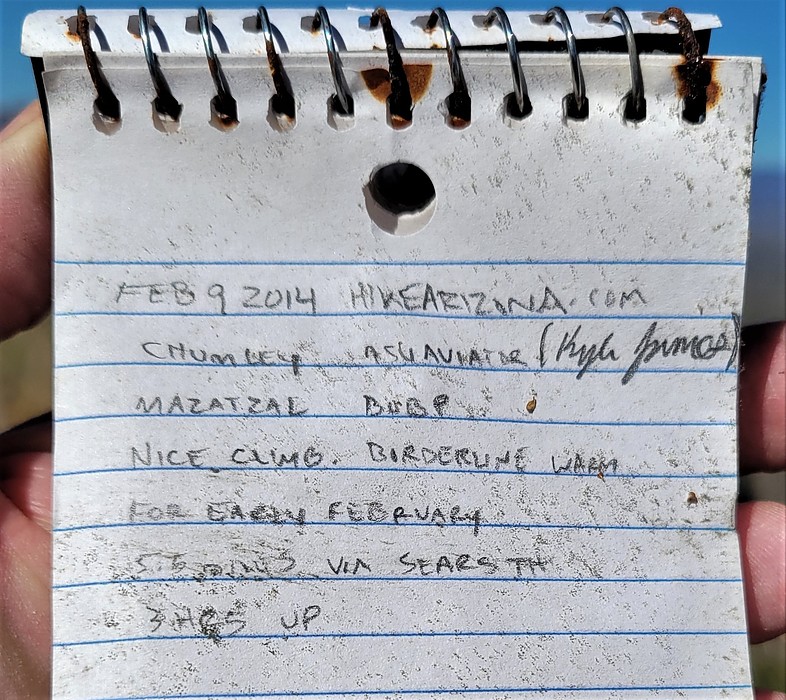 FEB 9 2014 HIKEARIZONA.COM
CHUMLEY ASUAVIATOR (Kyle James)
MAZATZAL BOBP
NICE CLIMB. BORDERLINE WARM
FOR EARLY FEBRUARY
5.5 VIA SEARS TH
3 HRS UP